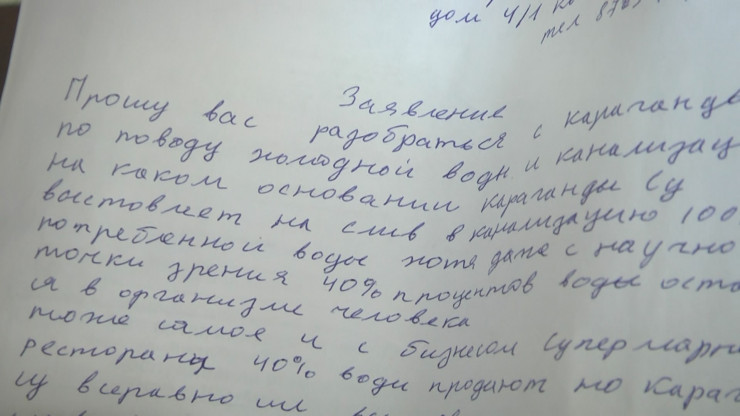 дом 4/1 ко
тел 870
Заявление
Прошу вас разобраться с караганды
по поводу холодной воды и канализац
на каком основании караганды Су
выстовляет на слив в канализацию 100
потребленной воды хотя даже с научно
точки зрения 40% процентов воды оста
ся в организме человека
тоже самое и с бизнесом Супермарк
ресторана 40% воды продают но Кара
су всеравно им